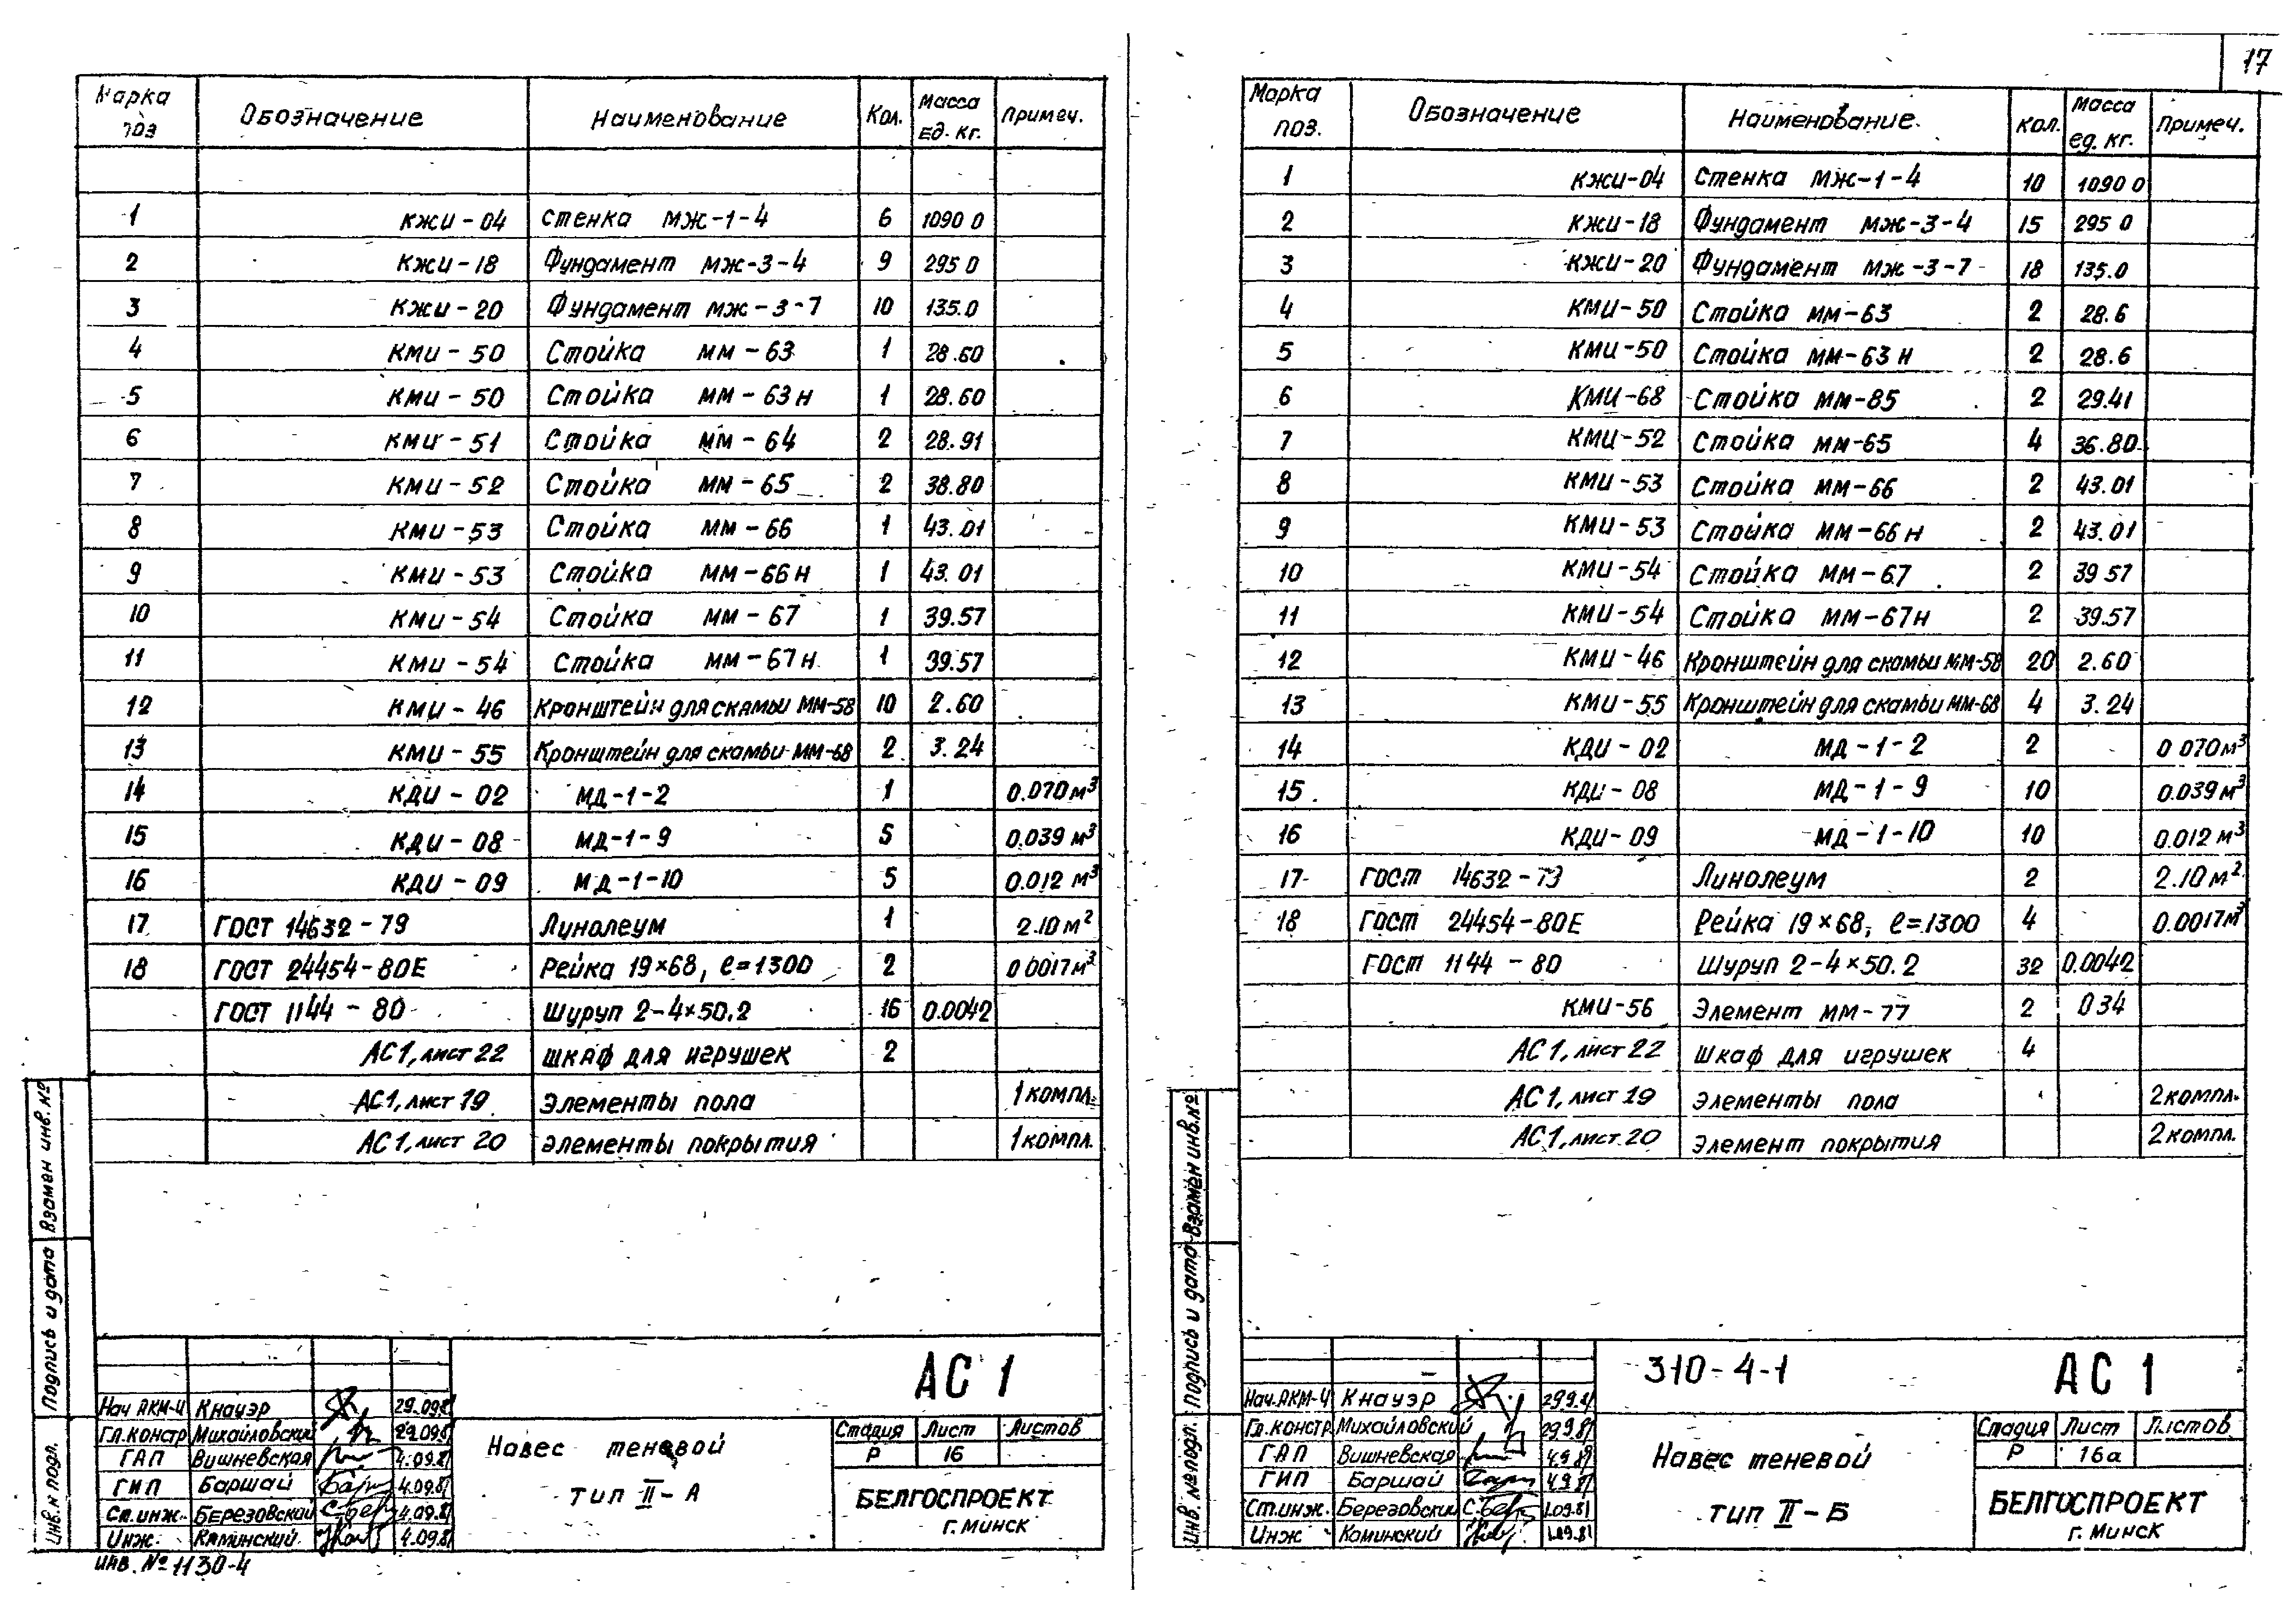 17
Марка поз Обозначение Наименование Кол. Масса ед. кг. Примеч.
1 КЖИ-04 Стенка МЖ-1-4 6 1090 0
2 КЖИ-18 Фундамент МЖ-3-4 9 295 0
3 КЖИ-20 Фундамент МЖ-3-7 10 135.0
4 КМИ-50 Стойка ММ-63 1 28.60
5 КМИ-50 Стойка ММ-63н 1 28.60
6 КМИ-51 Стойка ММ-64 2 28.91
7 КМИ-52 Стойка ММ-65 2 38.80
8 КМИ-53 Стойка ММ-66 1 43.01
9 КМИ-53 Стойка ММ-66н 1 43.01
10 КМИ-54 Стойка ММ-67 1 39.57
11 КМИ-54 Стойка ММ-67н 1 39.57
12 КМИ-46 Кронштейн для скамьи ММ-58 10 2.60
13 КМИ-55 Кронштейн для скамьи ММ-68 2 3.24
14 КДИ-02 МД-1-2 1 0.070 м³
15 КДИ-08 МД-1-9 5 0.039 м³
16 КДИ-09 МД-1-10 5 0.012 м³
17 ГОСТ 14632-79 Линолеум 1 2.10 м²
18 ГОСТ 24454-80Е Рейка 19×68, ℓ=1300 2 0 0017м³
ГОСТ 1144-80 Шуруп 2-4×50.2 16 0.0042
АС1, лист 22 шкаф для игрушек 2
АС1, лист 19 Элементы пола 1 компл.
АС1, лист 20 Элементы покрытия 1 компл.
Взамен инв. №
Подпись и дата
Инв. № подл.
АС 1
Нач АКМ-4 Кнауэр 29.09.81
Гл. констр Михайловский 29.09.81
ГАП Вишневская 4.09.81
ГИП Баршай 4.09.81
Ст. инж. Березовский 4.09.81
Инж. Каминский 4.09.81
Навес теневой
тип II-А
Стадия Лист Листов
Р 16
БЕЛГОСПРОЕКТ
г. Минск
инв. № 1130-4
Марка поз. Обозначение Наименование Кол. Масса ед. кг. Примеч.
1 КЖИ-04 Стенка МЖ-1-4 10 1090 0
2 КЖИ-18 Фундамент МЖ-3-4 15 295 0
3 КЖИ-20 Фундамент МЖ-3-7 18 135.0
4 КМИ-50 Стойка ММ-63 2 28.6
5 КМИ-50 Стойка ММ-63н 2 28.6
6 КМИ-68 Стойка ММ-85 2 29.41
7 КМИ-52 Стойка ММ-65 4 36.80
8 КМИ-53 Стойка ММ-66 2 43.01
9 КМИ-53 Стойка ММ-66н 2 43.01
10 КМИ-54 Стойка ММ-67 2 39 57
11 КМИ-54 Стойка ММ-67н 2 39.57
12 КМИ-46 Кронштейн для скамьи ММ-58 20 2.60
13 КМИ-55 Кронштейн для скамьи ММ-68 4 3.24
14 КДИ-02 МД-1-2 2 0 070м³
15 КДИ-08 МД-1-9 10 0.039 м³
16 КДИ-09 МД-1-10 10 0.012 м³
17 ГОСТ 14632-79 Линолеум 2 2.10 м²
18 ГОСТ 24454-80Е Рейка 19×68, ℓ=1300 4 0.0017м³
ГОСТ 1144-80 Шуруп 2-4×50.2 32 0.0042
КМИ-56 Элемент ММ-77 2 0 34
АС1, лист 22 Шкаф для игрушек 4
АС1, лист 19 Элементы пола 2 компл.
АС1, лист 20 Элемент покрытия 2 компл.
Взамен инв. №
Подпись и дата
Инв. № подл.
310-4-1 АС 1
Нач. АКМ-4 Кнауэр 29.9.81
Гл. констр Михайловский 29.9.81
ГАП Вишневская 4.9.81
ГИП Баршай 4.9.81
Ст. инж. Березовский
Инж Каминский
Навес теневой
тип II-Б
Стадия Лист Листов
Р 16а
БЕЛГОСПРОЕКТ
г. Минск